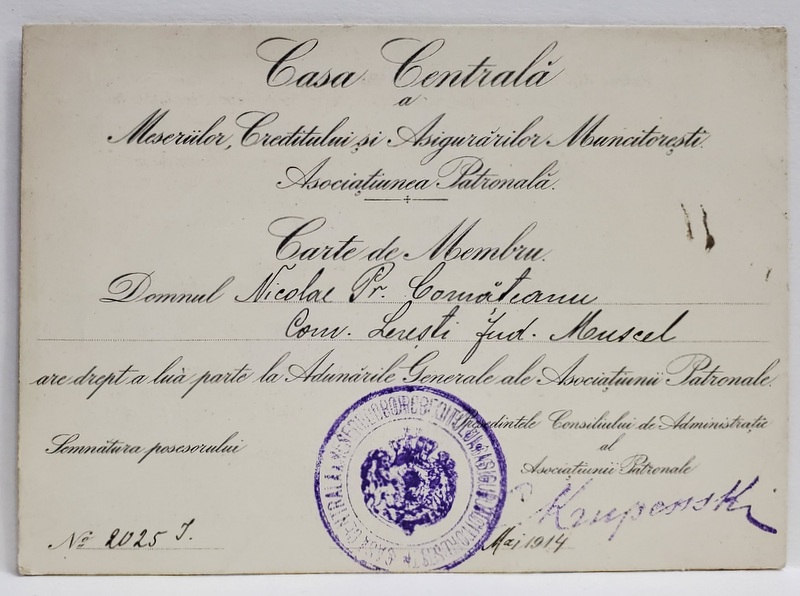 Casa Centrală
a
Meseriilor, Creditului și Asigurărilor Muncitorești.
Asociațiunea Patronală.
Carte de Membru.
Domnul Nicolae Pr. Comăteanu
Com. Lerești Jud. Muscel
are drept a luà parte la Adunările Generale ale Asociațiunii Patronale.
Președintele Consiliului de Administrație
al
Asociațiunii Patronale
Semnătura posesorului
Krupenski
No 2025 J.
Mai 1914
CASA CENTRALĂ A MESERIILOR